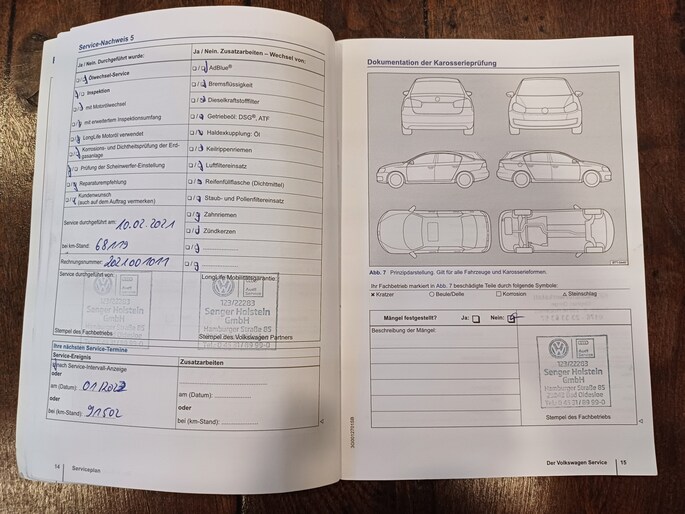 Service-Nachweis 5
Ja / Nein. Durchgeführt wurde:
Ölwechsel-Service
Inspektion
mit Motorölwechsel
mit erweitertem Inspektionsumfang
LongLife Motoröl verwendet
Korrosions- und Dichtheitsprüfung der Erd-
gasanlage
Prüfung der Scheinwerfer-Einstellung
Reparaturempfehlung
Kundenwunsch
(auch auf dem Auftrag vermerken)
Service durchgeführt am: 10.02.2021
bei km-Stand: 68119
Rechnungsnummer: 2021001011
Service durchgeführt von:
123/22283
Senger Holstein
GmbH
Hamburger Straße 85
Stempel des Fachbetriebs
Ja / Nein. Zusatzarbeiten – Wechsel von:
AdBlue®
Bremsflüssigkeit
Dieselkraftstofffilter
Getriebeöl: DSG®, ATF
Haldexkupplung: Öl
Keilrippenriemen
Luftfiltereinsatz
Reifenfüllflasche (Dichtmittel)
Staub- und Pollenfiltereinsatz
Zahnriemen
Zündkerzen
LongLife Mobilitätsgarantie:
123/22283
Senger Holstein
GmbH
Hamburger Straße 85
Stempel des Volkswagen Partners
Ihre nächsten Service-Termine
Service-Ereignis
nach Service-Intervall-Anzeige
oder
am (Datum):
oder
bei (km-Stand): 91502
Zusatzarbeiten
am (Datum):
oder
bei (km-Stand):
14 Serviceplan
Dokumentation der Karosserieprüfung
Abb. 7 Prinzipdarstellung. Gilt für alle Fahrzeuge und Karosserieformen.
Ihr Fachbetrieb markiert in Abb. 7 beschädigte Teile durch folgende Symbole:
× Kratzer ○ Beule/Delle □ Korrosion △ Steinschlag
Mängel festgestellt? Ja: Nein:
Beschreibung der Mängel:
123/22283
Senger Holstein
GmbH
Hamburger Straße 85
23843 Bad Oldesloe
Stempel des Fachbetriebs
Der Volkswagen Service 15